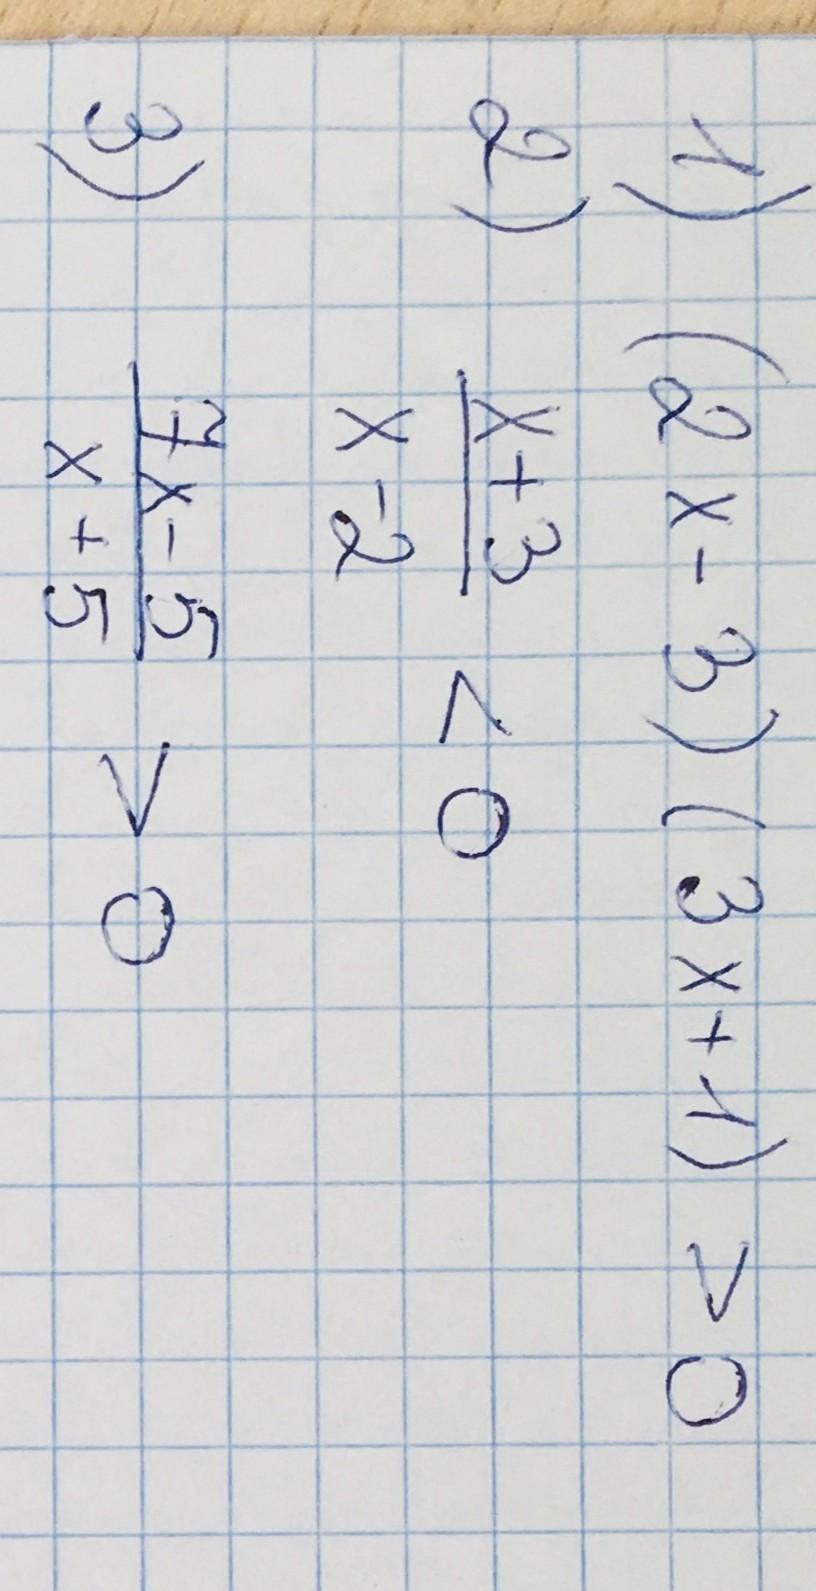 1) (2x-3)(3x+1) > 0
2) x+3
x-2 < 0
3) 7x-5
x+5 > 0